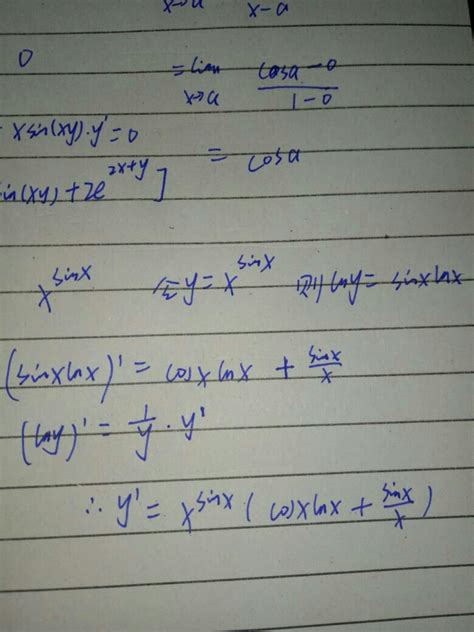 x→a x-a
0
=lim cosa-0
x→a 1-0
xsin(xy)·y'=0
= cosa
in(xy)+2e^{2x+y}]
x^{sinx} 令y=x^{sinx} 则lny=sinxlnx
(sinxlnx)'=cosxlnx+sinx/x
(lny)'=1/y·y'
∴y'=x^{sinx}(cosxlnx+sinx/x)